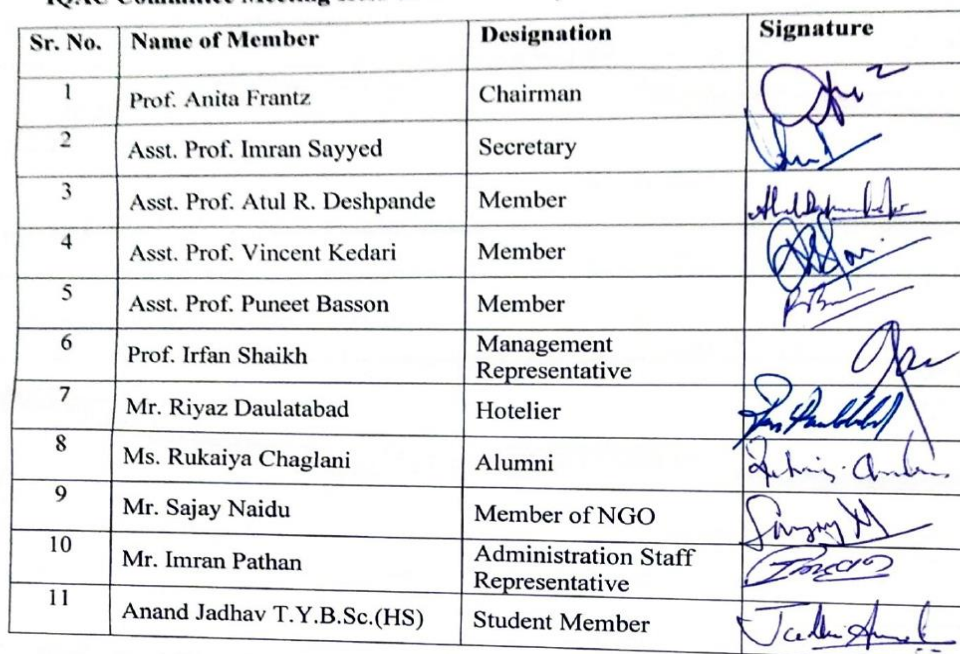 IQAC Committee Meeting Held
Sr. No. Name of Member Designation Signature
1 Prof. Anita Frantz Chairman
2 Asst. Prof. Imran Sayyed Secretary
3 Asst. Prof. Atul R. Deshpande Member
4 Asst. Prof. Vincent Kedari Member
5 Asst. Prof. Puneet Basson Member
6 Prof. Irfan Shaikh Management
Representative
7 Mr. Riyaz Daulatabad Hotelier
8 Ms. Rukaiya Chaglani Alumni
9 Mr. Sajay Naidu Member of NGO
10 Mr. Imran Pathan Administration Staff
Representative
11 Anand Jadhav T.Y.B.Sc.(HS) Student Member